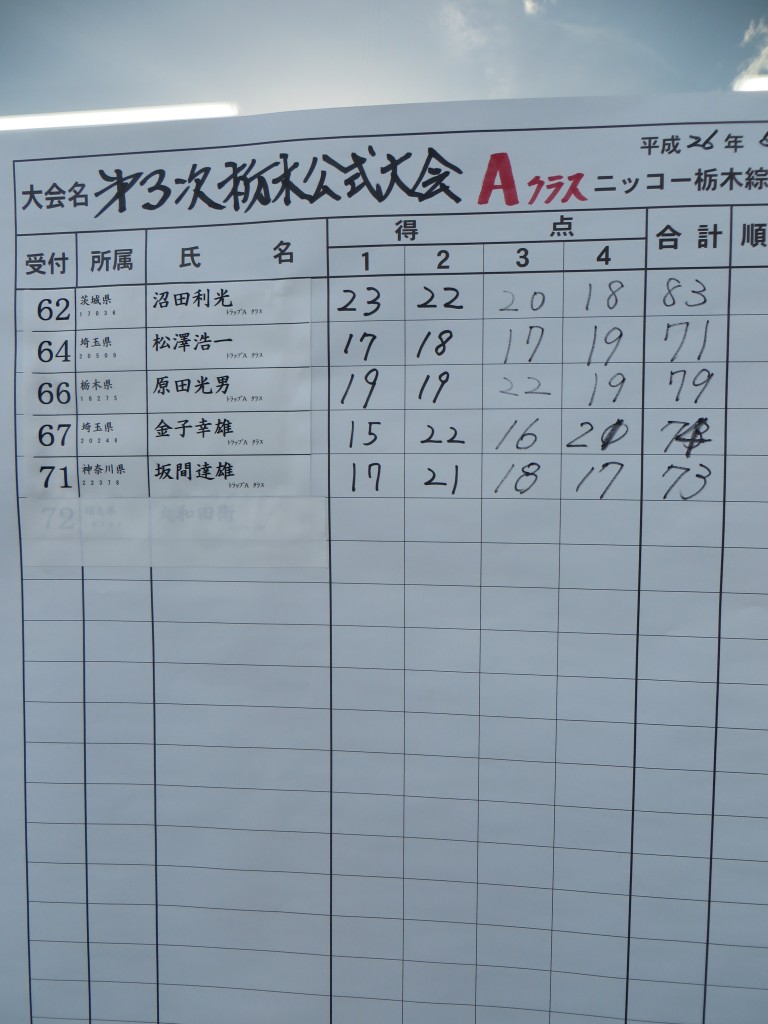 平成26年
大会名 第3次栃木公式大会 Aクラス ニッコー栃木綜
受付 所属 氏名 得点 合計 順
1 2 3 4
62 茨城県 沼田利光 23 22 20 18 83
トラップA クラス
64 埼玉県 松澤浩一 17 18 17 19 71
20509 トラップA クラス
66 栃木県 原田光男 19 19 22 19 79
16275 トラップA クラス
67 埼玉県 金子幸雄 15 22 16
20246 トラップA クラス
71 神奈川県 坂間達雄 17 21 18 17 73
22378 トラップA クラス
72 和田